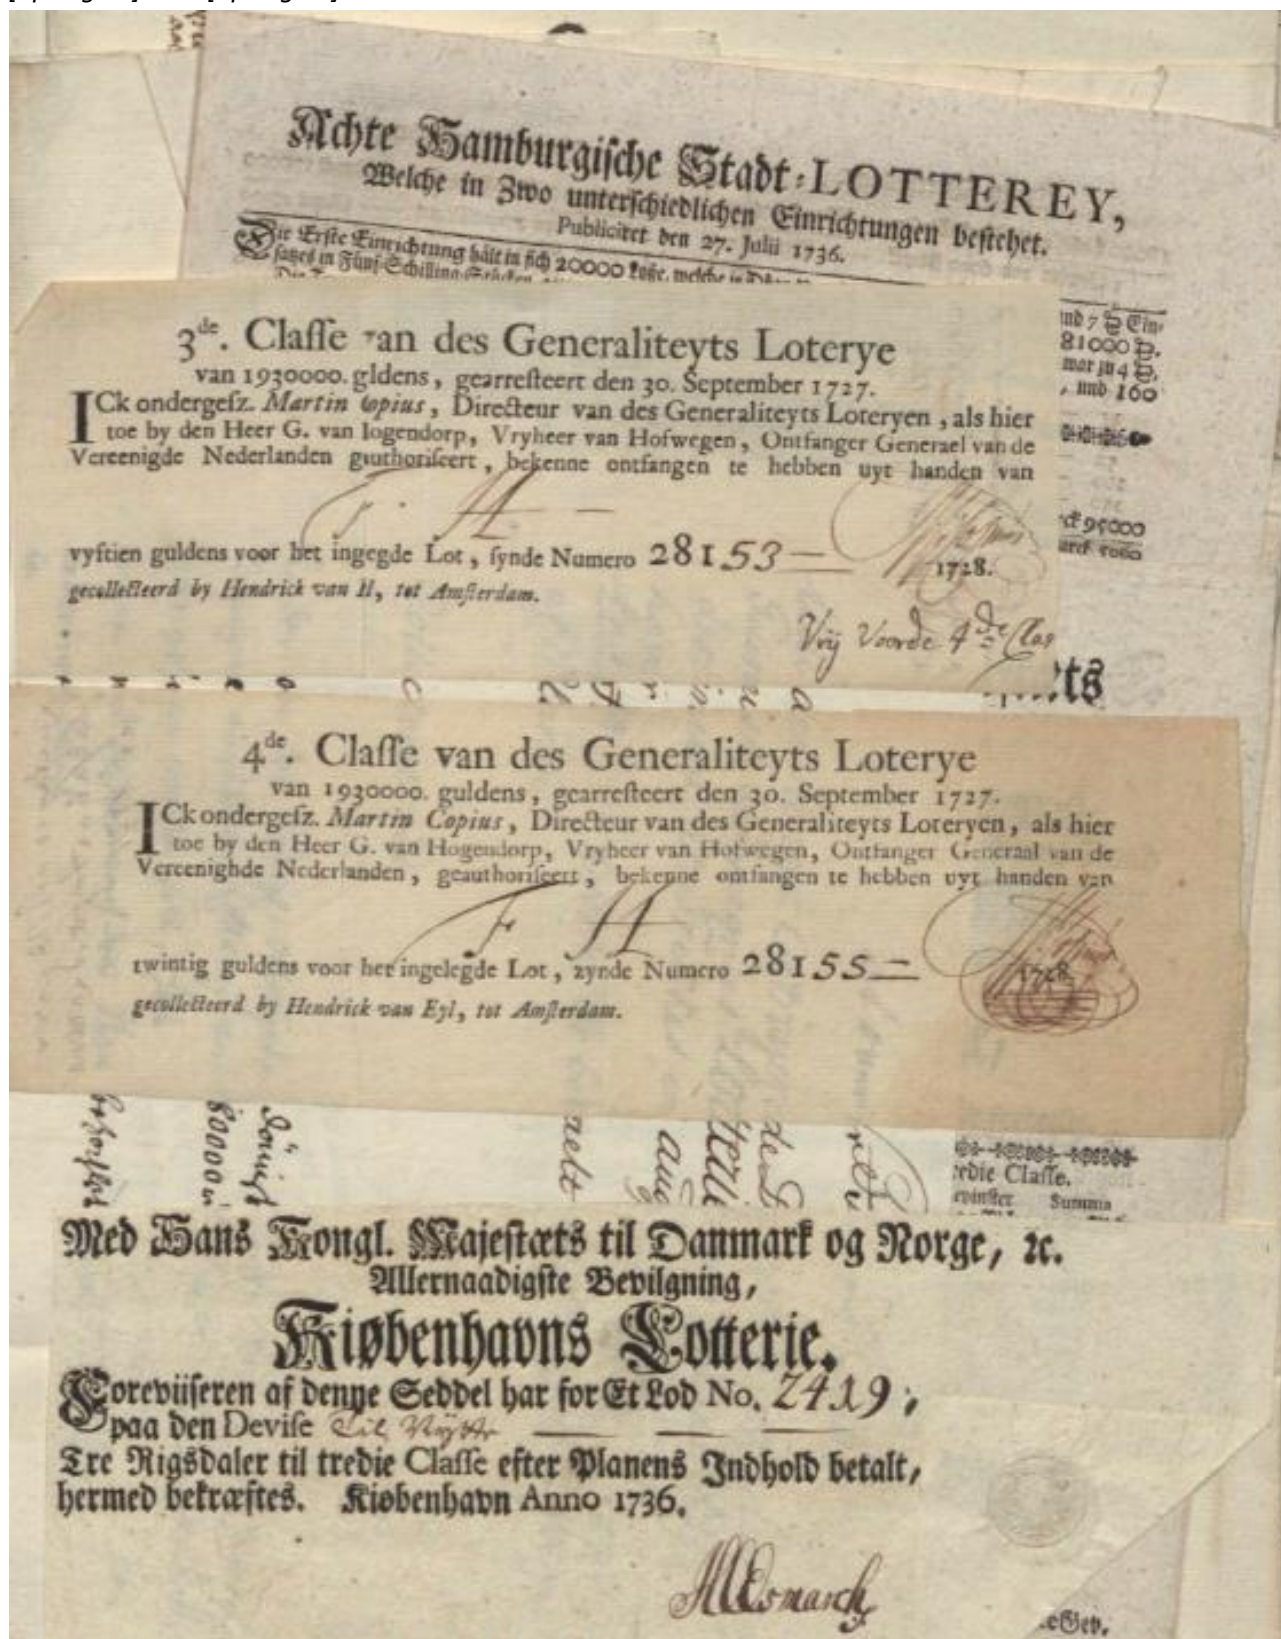 Achte Hamburgische Stadt-LOTTEREY,
Welche in Zwo unterschiedlichen Einrichtungen bestehet.
Publiciret den 27. Julii 1736.
Die Erste Einrichtung hält in sich 20000 Loße, welche in
satzes in Fünf-Schilling-Stücken
und 7 Ein-
81000
mar zu 4
, und 160
95000
3de. Classe van des Generaliteyts Loterye
van 1930000. gldens, gearresteert den 30. September 1727.
ICk ondergesz. Martin opius, Directeur van des Generaliteyts Loteryen, als hier
toe by den Heer G. van logendorp, Vryheer van Hofwegen, Ontfanger Generael van de
Vereenigde Nederlanden gauthoriseert, bekenne ontfangen te hebben uyt handen van
vyftien guldens voor het ingegde Lot, synde Numero 28153
1728.
gecollecteerd by Hendrick van H, tot Amsterdam.
Vrij Voorde 4de Clas
ts
4de. Classe van des Generaliteyts Loterye
van 1930000. guldens, gearresteert den 30. September 1727.
ICk ondergesz. Martin Copius, Directeur van des Generaliteyts Loteryen, als hier
toe by den Heer G. van Hogendorp, Vryheer van Hofwegen, Ontfanger Generaal van de
Vereenighde Nederlanden, geauthoriseert, bekenne ontfangen te hebben uyt handen van
F H
twintig guldens voor het ingelegde Lot, zynde Numero 28155
1728
gecollecteerd by Hendrick van Eyl, tot Amsterdam.
80000
redie Classe.
evinster Summa
Med Hans Kongl. Majestæts til Danmark og Norge, ꝛc.
Allernaadigste Bevilgning,
Kiøbenhavns Lotterie.
Foreviiseren af denne Seddel har for Et Lod No. 2419,
paa den Devise Til Nytte
Tre Rigsdaler til tredie Classe efter Planens Indhold betalt,
hermed bekræftes. Kiøbenhavn Anno 1736.